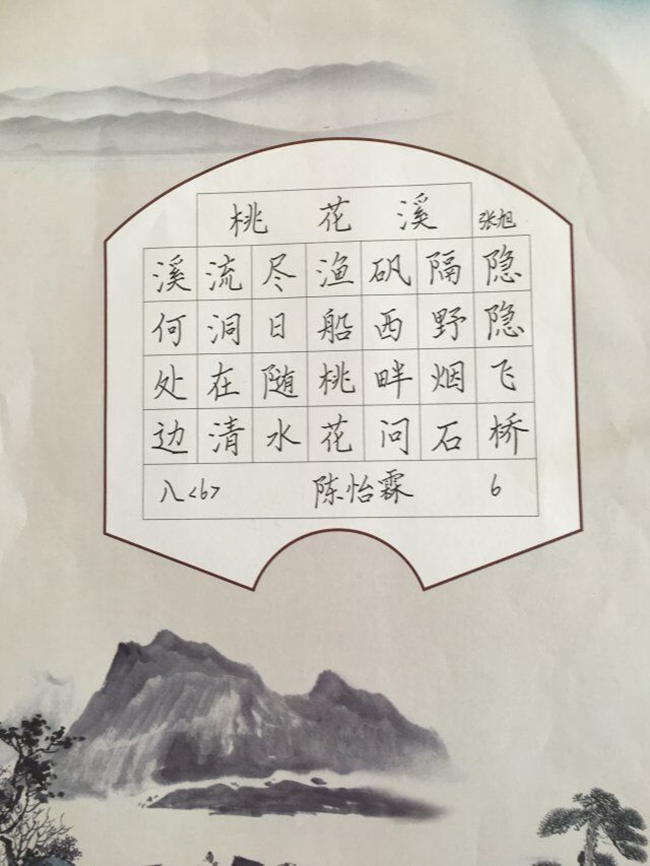 桃花溪
张旭
隐隐飞桥
隔野烟石
矶西畔问
渔船桃花
尽日随水
流洞在清
溪何处边
八<6> 陈怡霖 6